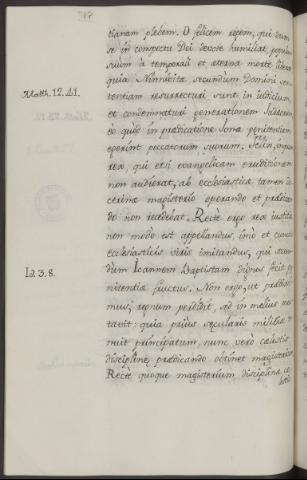 tianam plebem. O felicem regem, qui dum
se in conspectu Dei devote humiliat, populum
suum à temporali et æterna morte liberat
quia Ninivitæ secundum Domini sen-
Matth. 12. 41.
tentiam resurrecturi sunt in iudicium,
et condemnaturi generationem Iudæorum
eo quod in prædicatione Ionæ pænitentiam
egerint peccatorum suorum. Felix, inquam
rex, qui etsi evangelicam eruditionem
non audierat, ab ecclesiastica tamen do-
ctrinæ magisterio operando et prædican-
do non recedebat. Recte ergo rex iustitiæ
non modo est appellandus, imò et cunctis
ecclesiasticis viris imitandus, qui secun-
Lc. 3. 8.
dum Ioannem Baptistam dignos fecit pæ-
nitentiæ fructus. Non ergo, ut prædixi-
mus, regnum perdidit, sed in melius mu-
tavit: quia prius sæcularis militiæ te-
nuit principatum, nunc vero cælestis
disciplinæ prædicando obtinet magisterium
Recte quoque magisterium disciplinæ